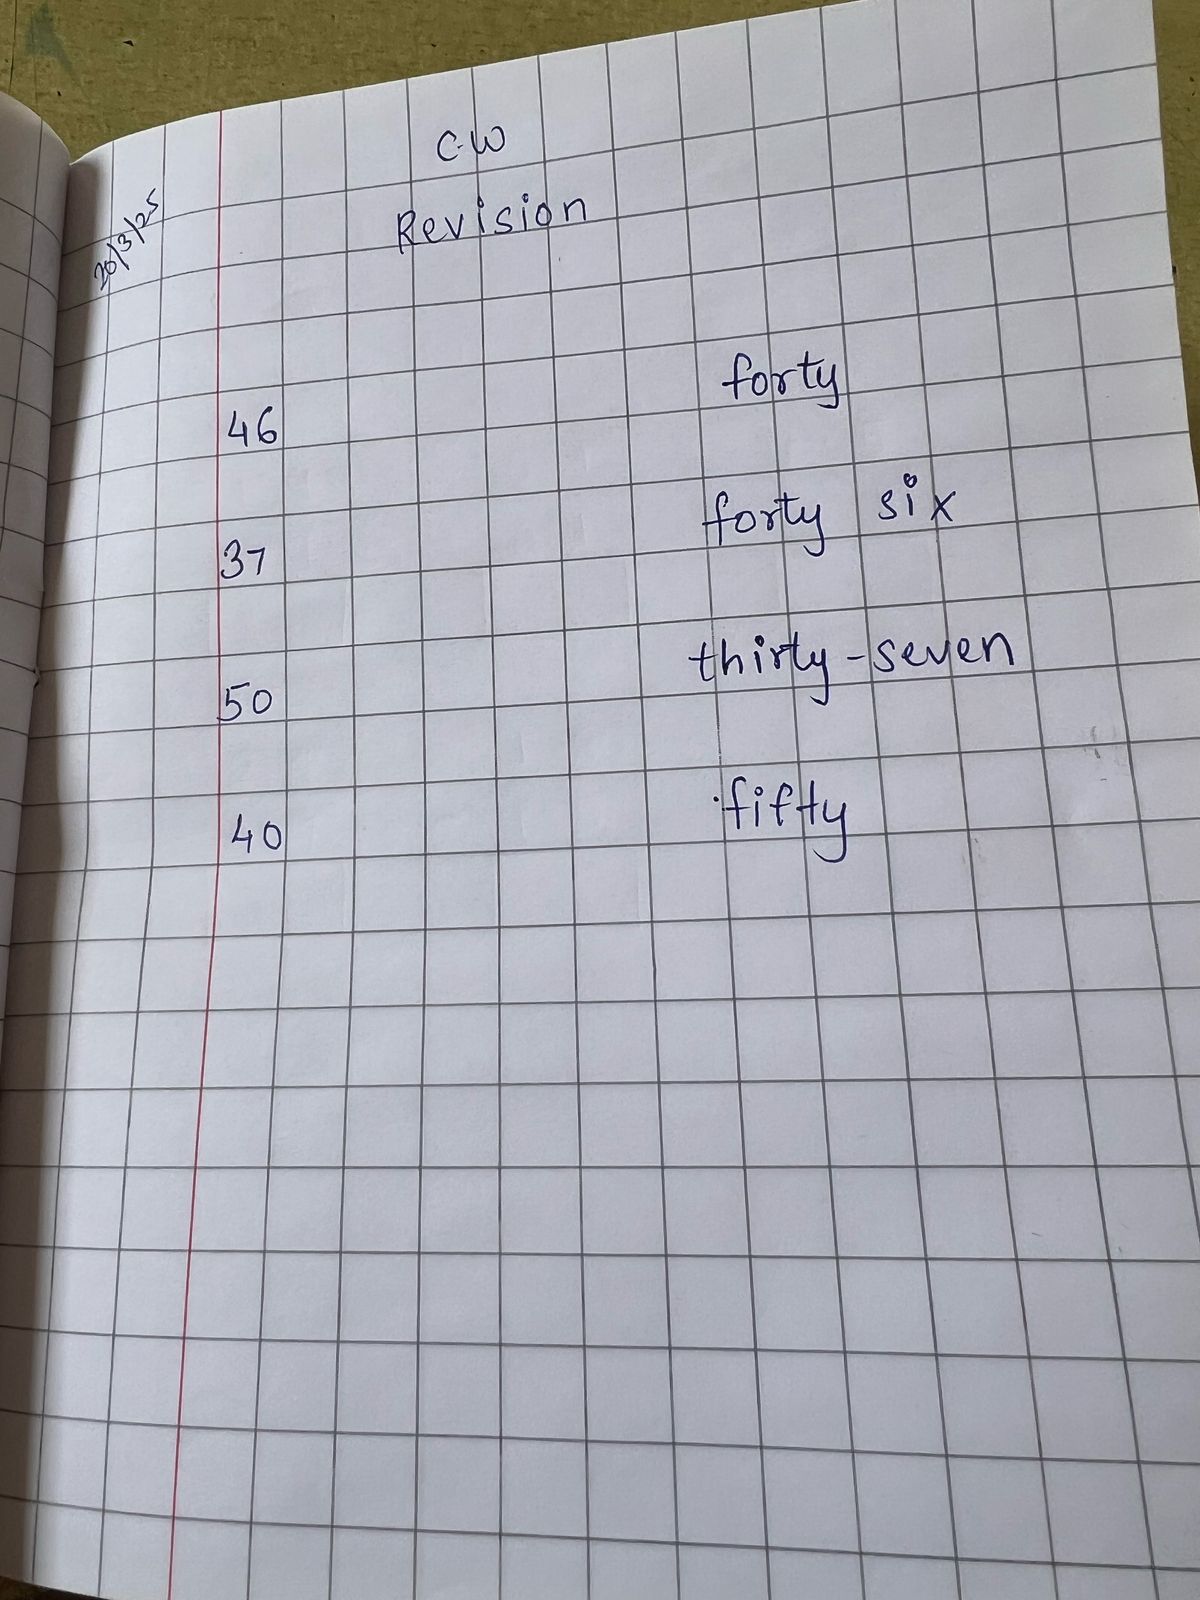 C.W
20/3/25
Revision
forty
46
forty six
37
thirty-seven
50
fifty
40